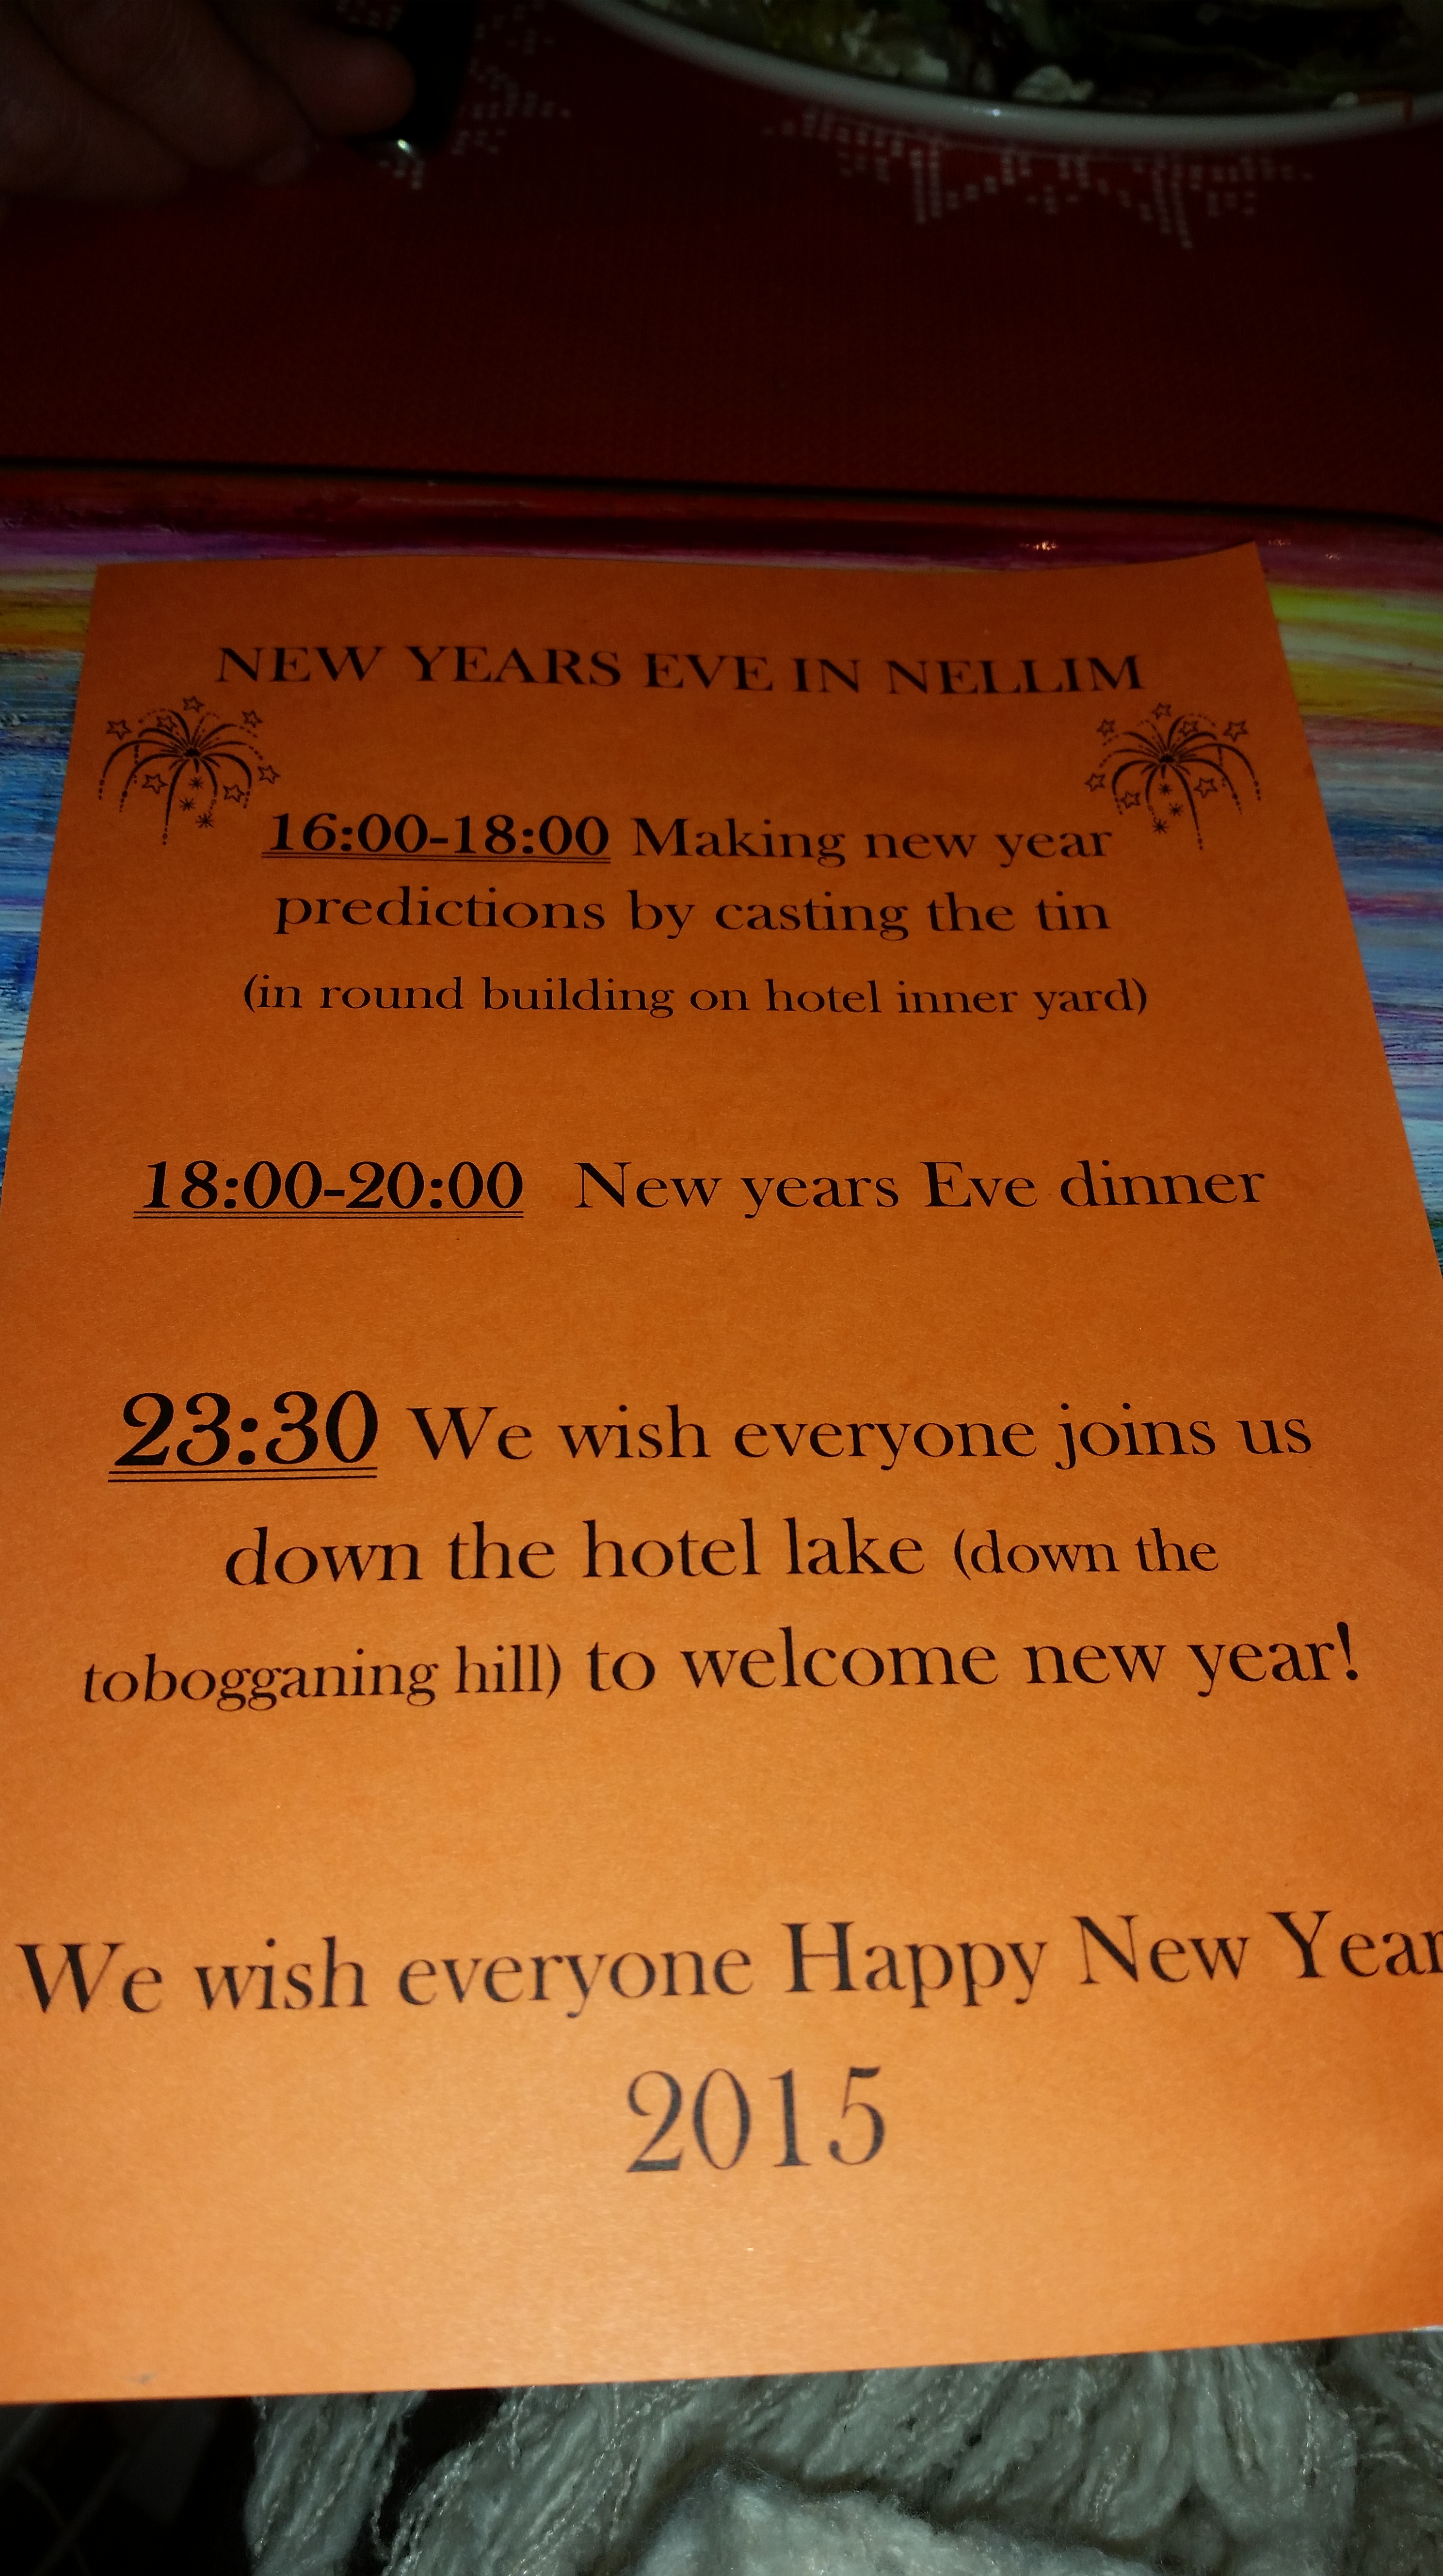 NEW YEARS EVE IN NELLIM
16:00-18:00 Making new year
predictions by casting the tin
(in round building on hotel inner yard)
18:00-20:00 New years Eve dinner
23:30 We wish everyone joins us
down the hotel lake (down the
tobogganing hill) to welcome new year!
We wish everyone Happy New Year
2015